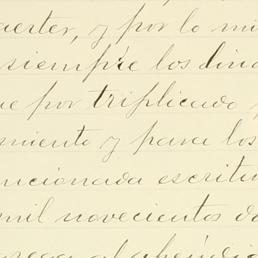 uerter, y por lo mi
siempre los dind
ue por triplicado y
miento y para los
ncionada escritu
mil novecientos do